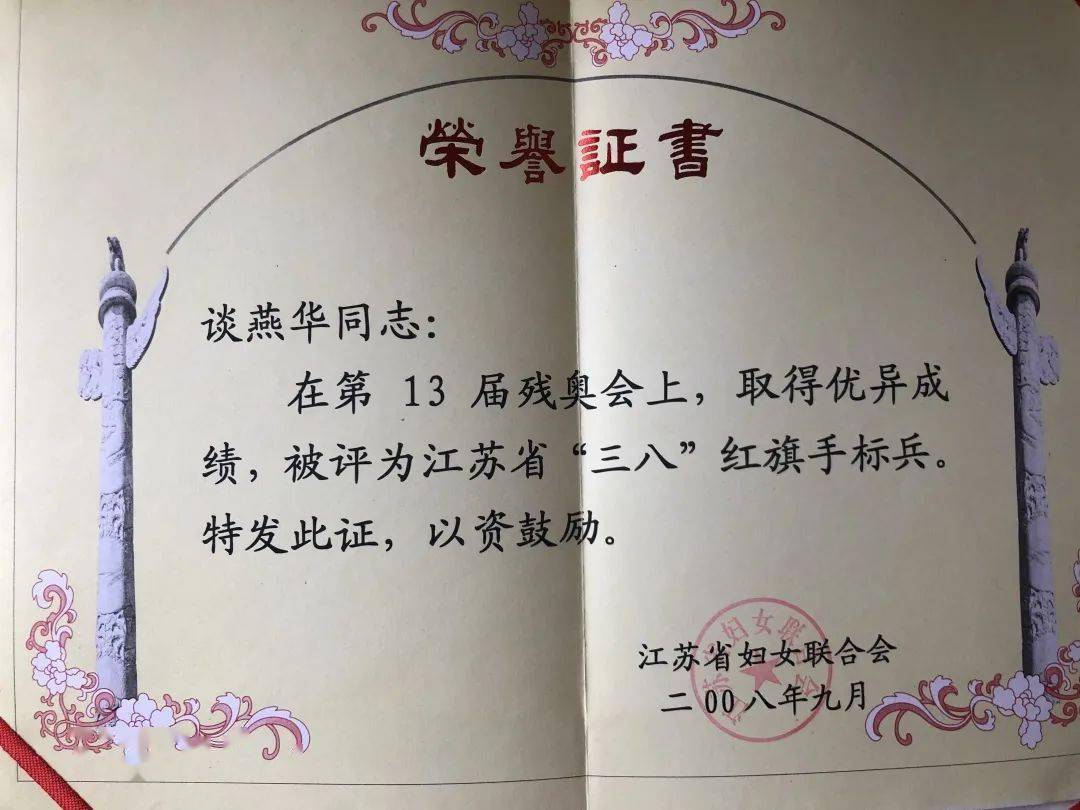 榮譽証書
谈燕华同志：
在第 13 届残奥会上，取得优异成
绩，被评为江苏省“三八”红旗手标兵。
特发此证，以资鼓励。
江苏省妇女联合会
二00八年九月